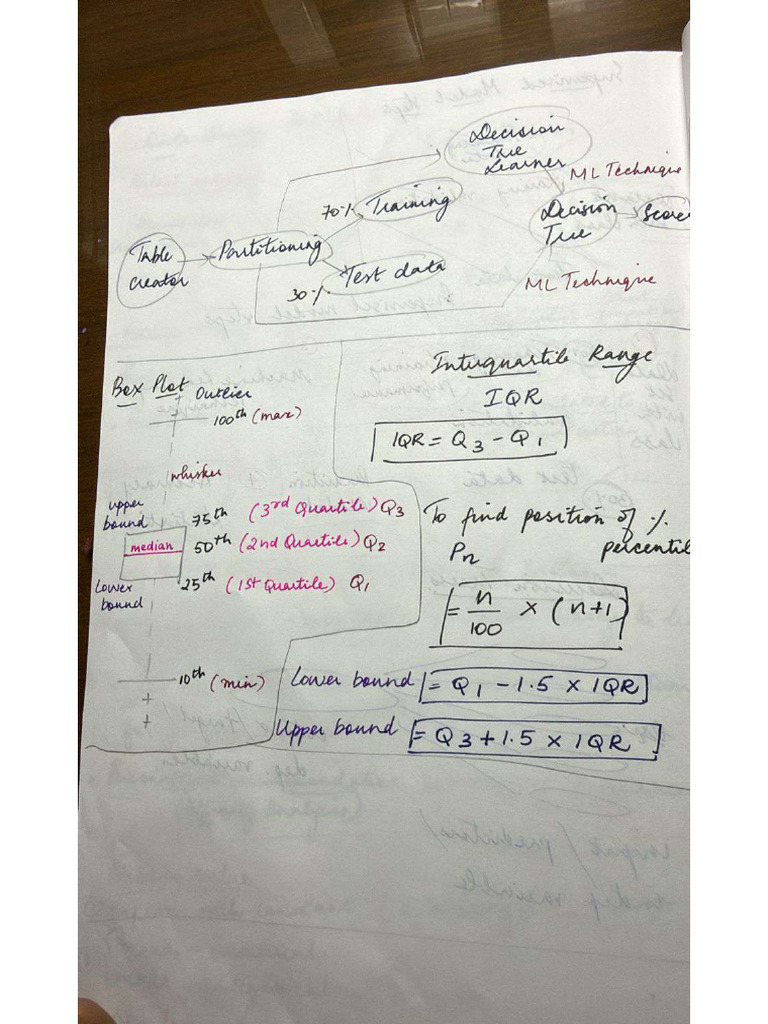 Decision
Tree
Learner
ML Technique
70%
Training
Decision
Tree
Score
Table
creator
Partitioning
Test data
30%
ML Technique
Interquartile Range
IQR
IQR = Q3 - Q1
Box Plot
Outlier
100th (max)
whisker
upper
bound
75th (3rd Quartile) Q3
median
50th (2nd Quartile) Q2
Lower
bound
25th (1st Quartile) Q1
10th (min)
To find position of %
Pn percentil
= n/100 × (n+1)
Lower bound = Q1 - 1.5 × IQR
Upper bound = Q3 + 1.5 × IQR